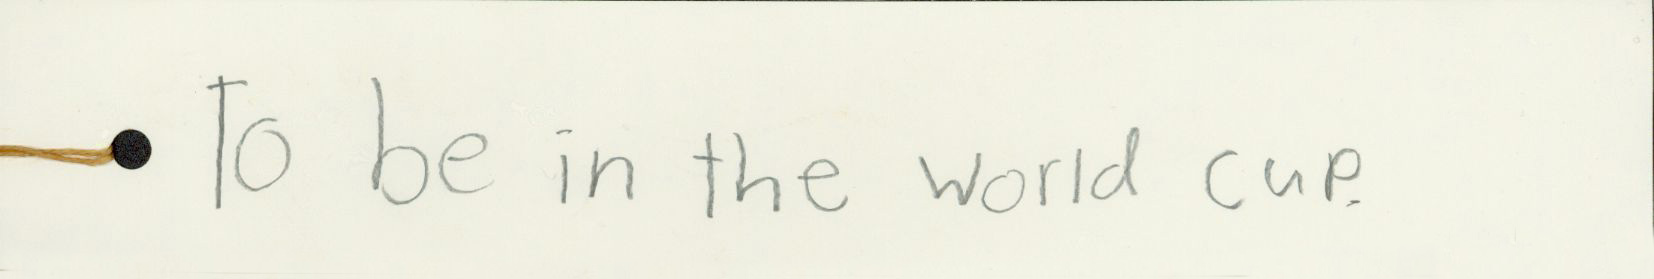 To be in the world cup.